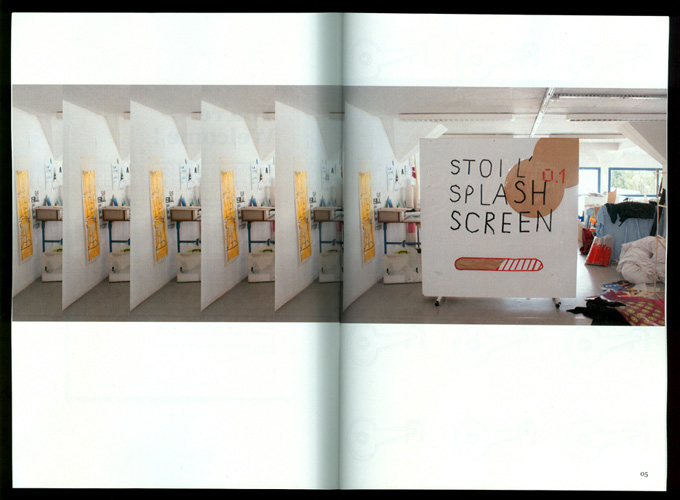 STOI L' 0.1
SPLASH
SCREEN
05